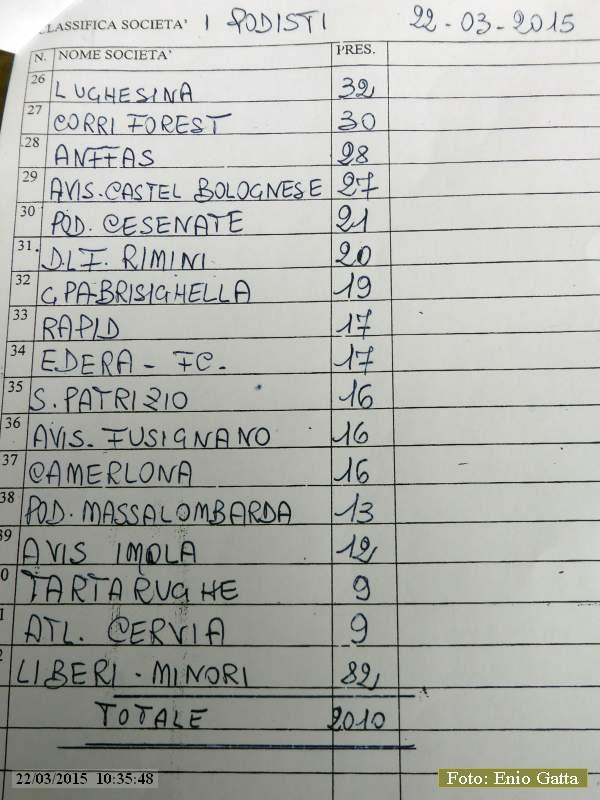 CLASSIFICA SOCIETA' I PODISTI 22-03-2015
N. NOME SOCIETA' PRES.
26 LUGHESINA 32
27 CORRI FOREST 30
28 ANFFAS 28
29 AVIS. CASTEL BOLOGNESE 27
30 POD. CESENATE 21
31. D.L.F. RIMINI 20
32 G.PA-BRISIGHELLA 19
33 RAPID 17
34 EDERA - FC. 17
35 S. PATRIZIO 16
36 AVIS. FUSIGNANO 16
37 CAMERLONA 16
38 POD. MASSALOMBARDA 13
39 AVIS IMOLA 12
0 TARTARUGHE 9
1 ATL. CERVIA 9
2 LIBERI - MINORI 82
TOTALE 2010
22/03/2015 10:35:48
Foto: Enio Gatta